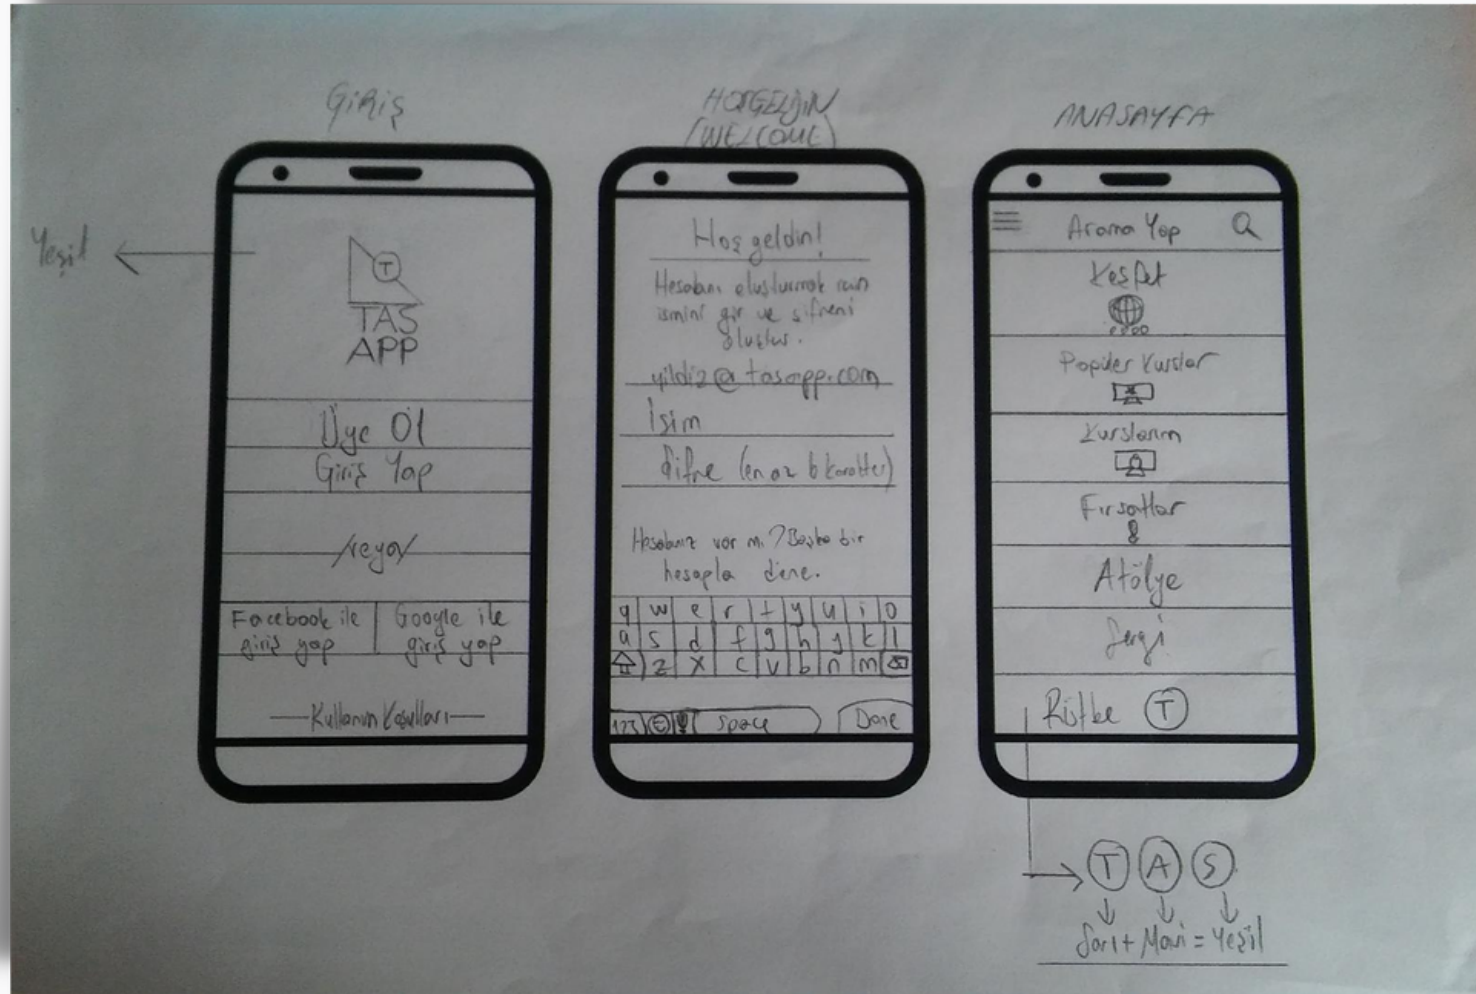 GİRİŞ
HOŞGELDİN
(WELCOME)
ANASAYFA
Yeşil
T
TAS
APP
Üye Ol
Giriş Yap
/veya/
Facebook ile
giriş yap
Google ile
giriş yap
Kullanım Koşulları
Hoş geldin!
Hesabını oluşturmak için
ismini gir ve şifreni
oluştur.
yildiz@tasapp.com
İsim
Şifre (en az 6 karakter)
Hesabınız var mı? Başka bir
hesapla dene.
q w e r t y u i o
a s d f g h j k l
z x c v b n m
123 space Done
Arama Yap
Keşfet
Popüler Kurslar
Kurslarım
Fırsatlar
Atölye
Sergi
T
T A S
Sarı + Mavi = Yeşil